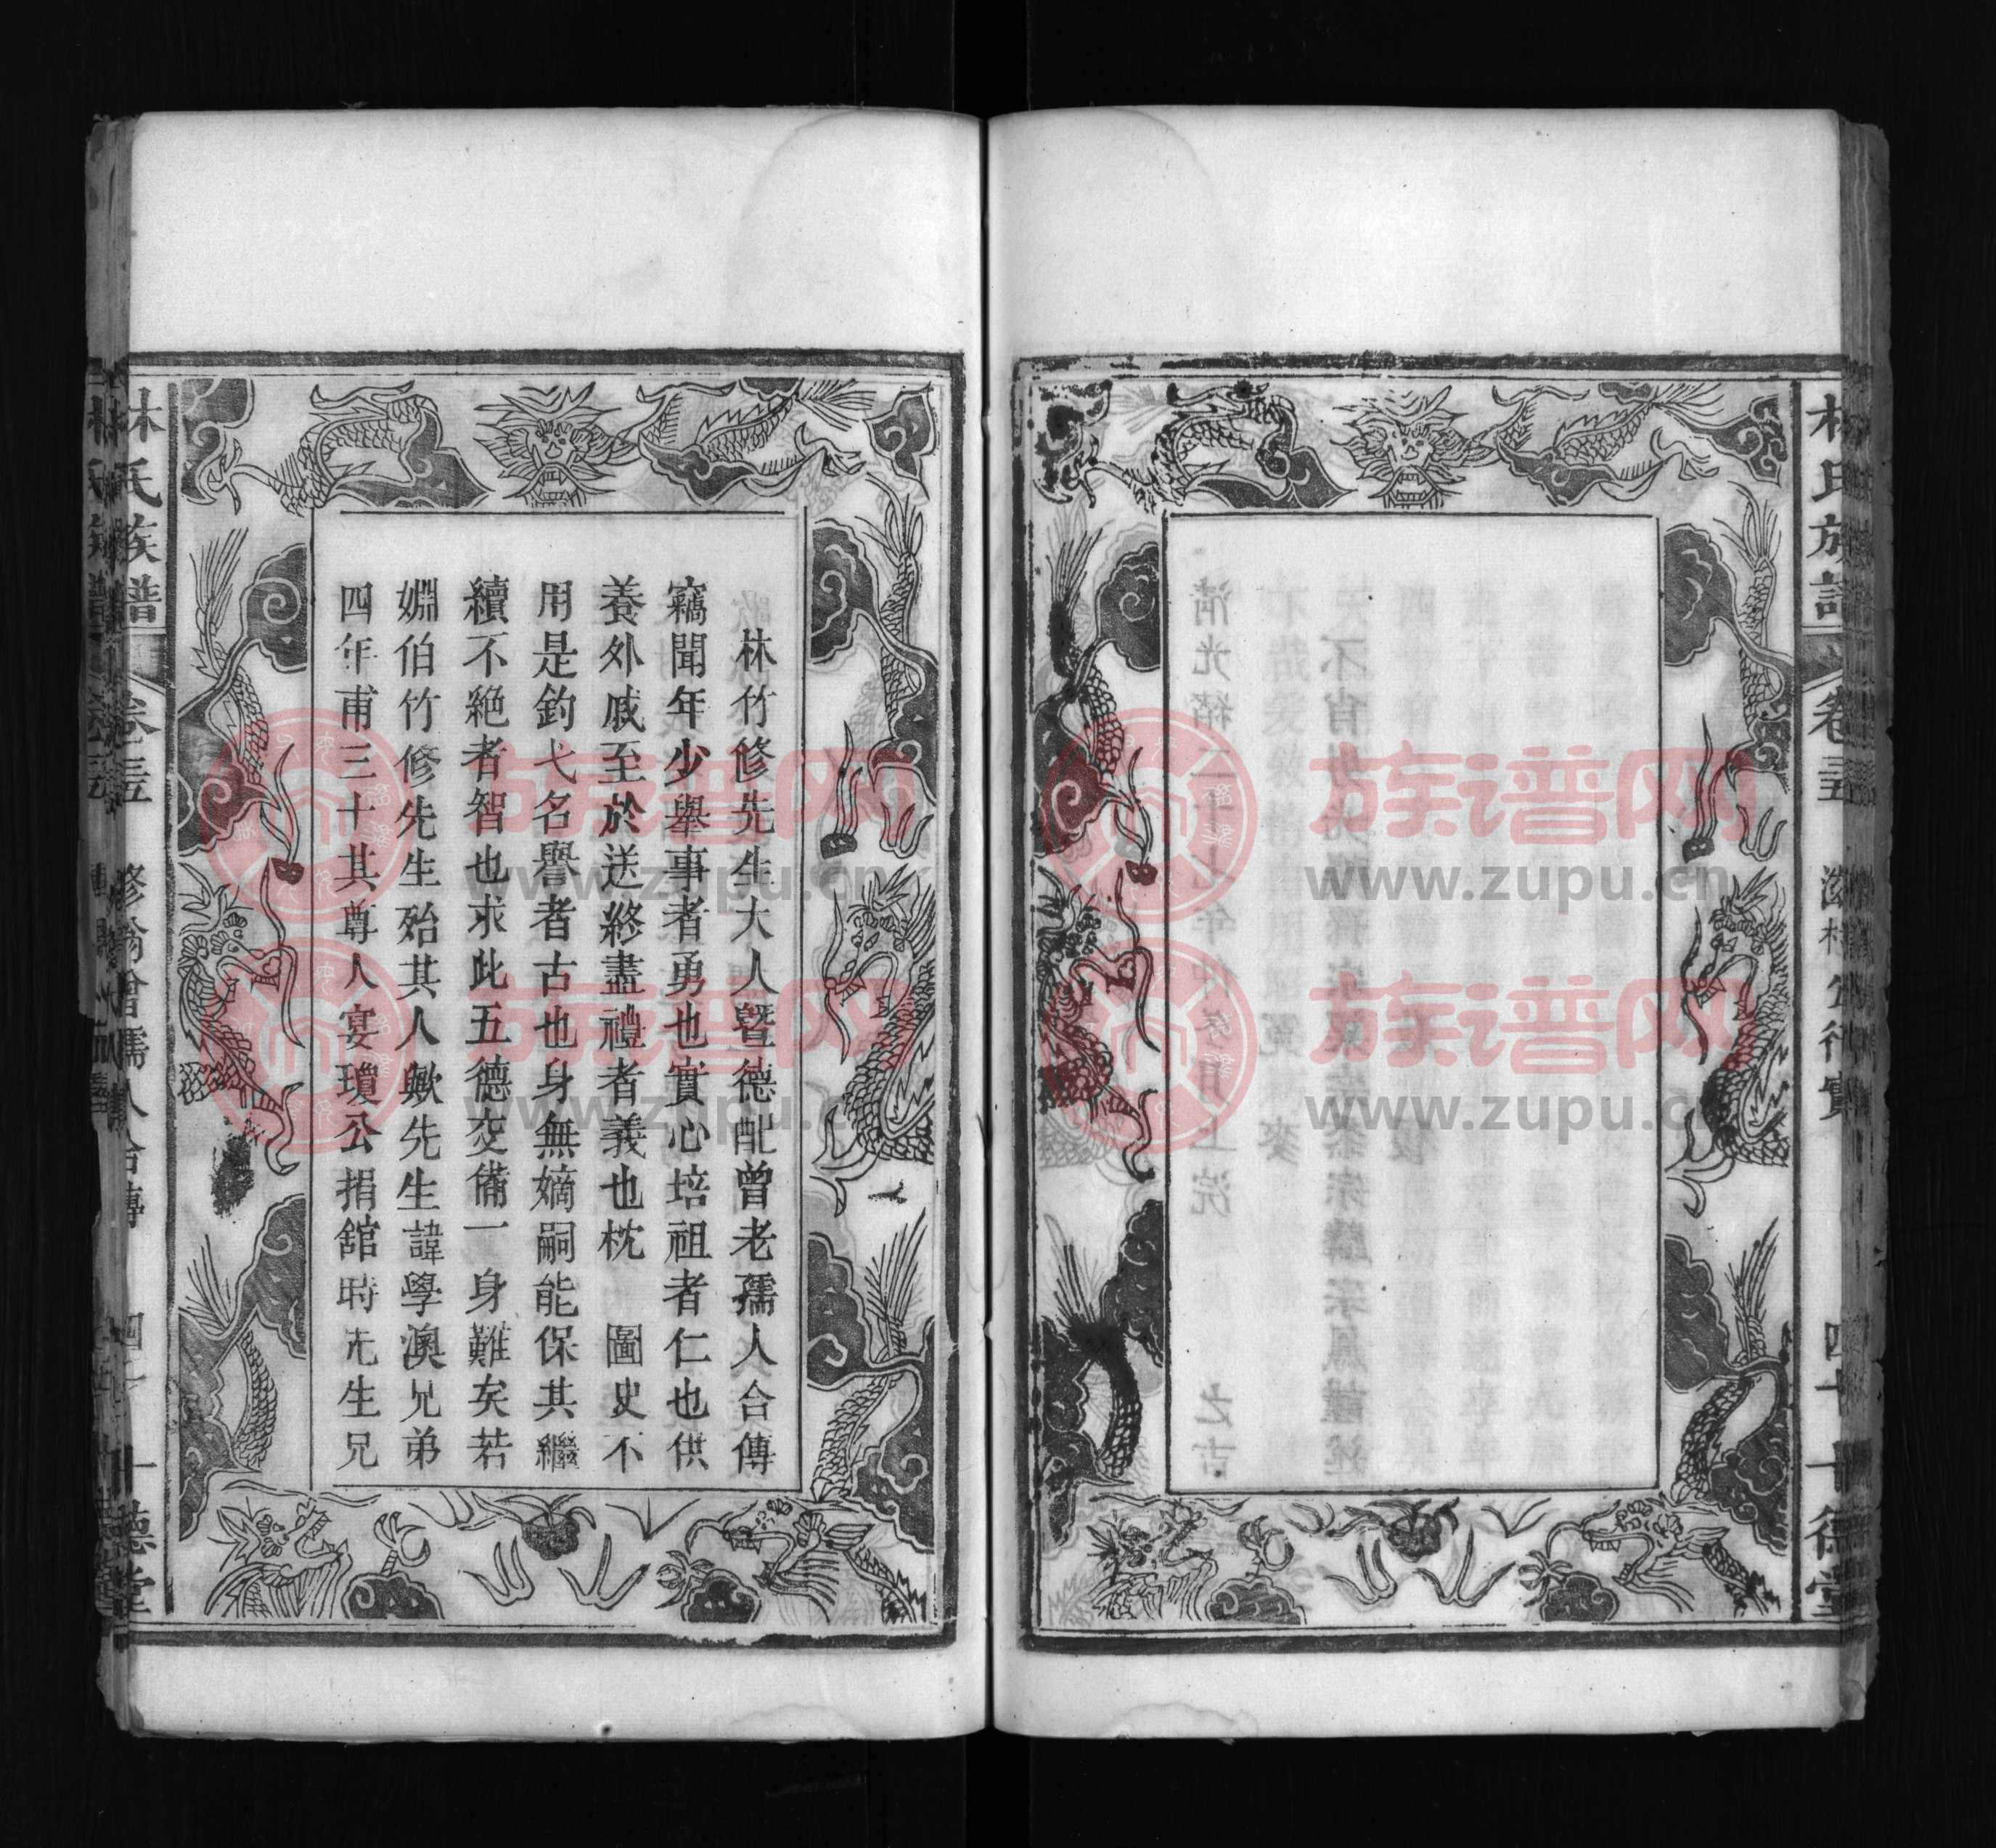 林氏族譜
卷三五
公行實
四十
德堂
林竹修先生大人暨德配曾老孺人合傳
竊聞年少舉事者勇也實心培祖者仁也供
養外戚至於送終盡禮者義也枕圖史不
用是釣弋名譽者古也身無嫡嗣能保其繼
續不絶者智也求此五德交備一身難矣若
婣伯竹修先生殆其人歟先生諱學澳兄弟
四年甫三十其尊人宴瓊公捐舘時先生兄
林氏族譜
卷三五
修翁曾孺人合傳
德堂
族谱网
www.zupu.cn
族谱网
www.zupu.cn
族谱网
www.zupu.cn
族谱网
www.zupu.cn